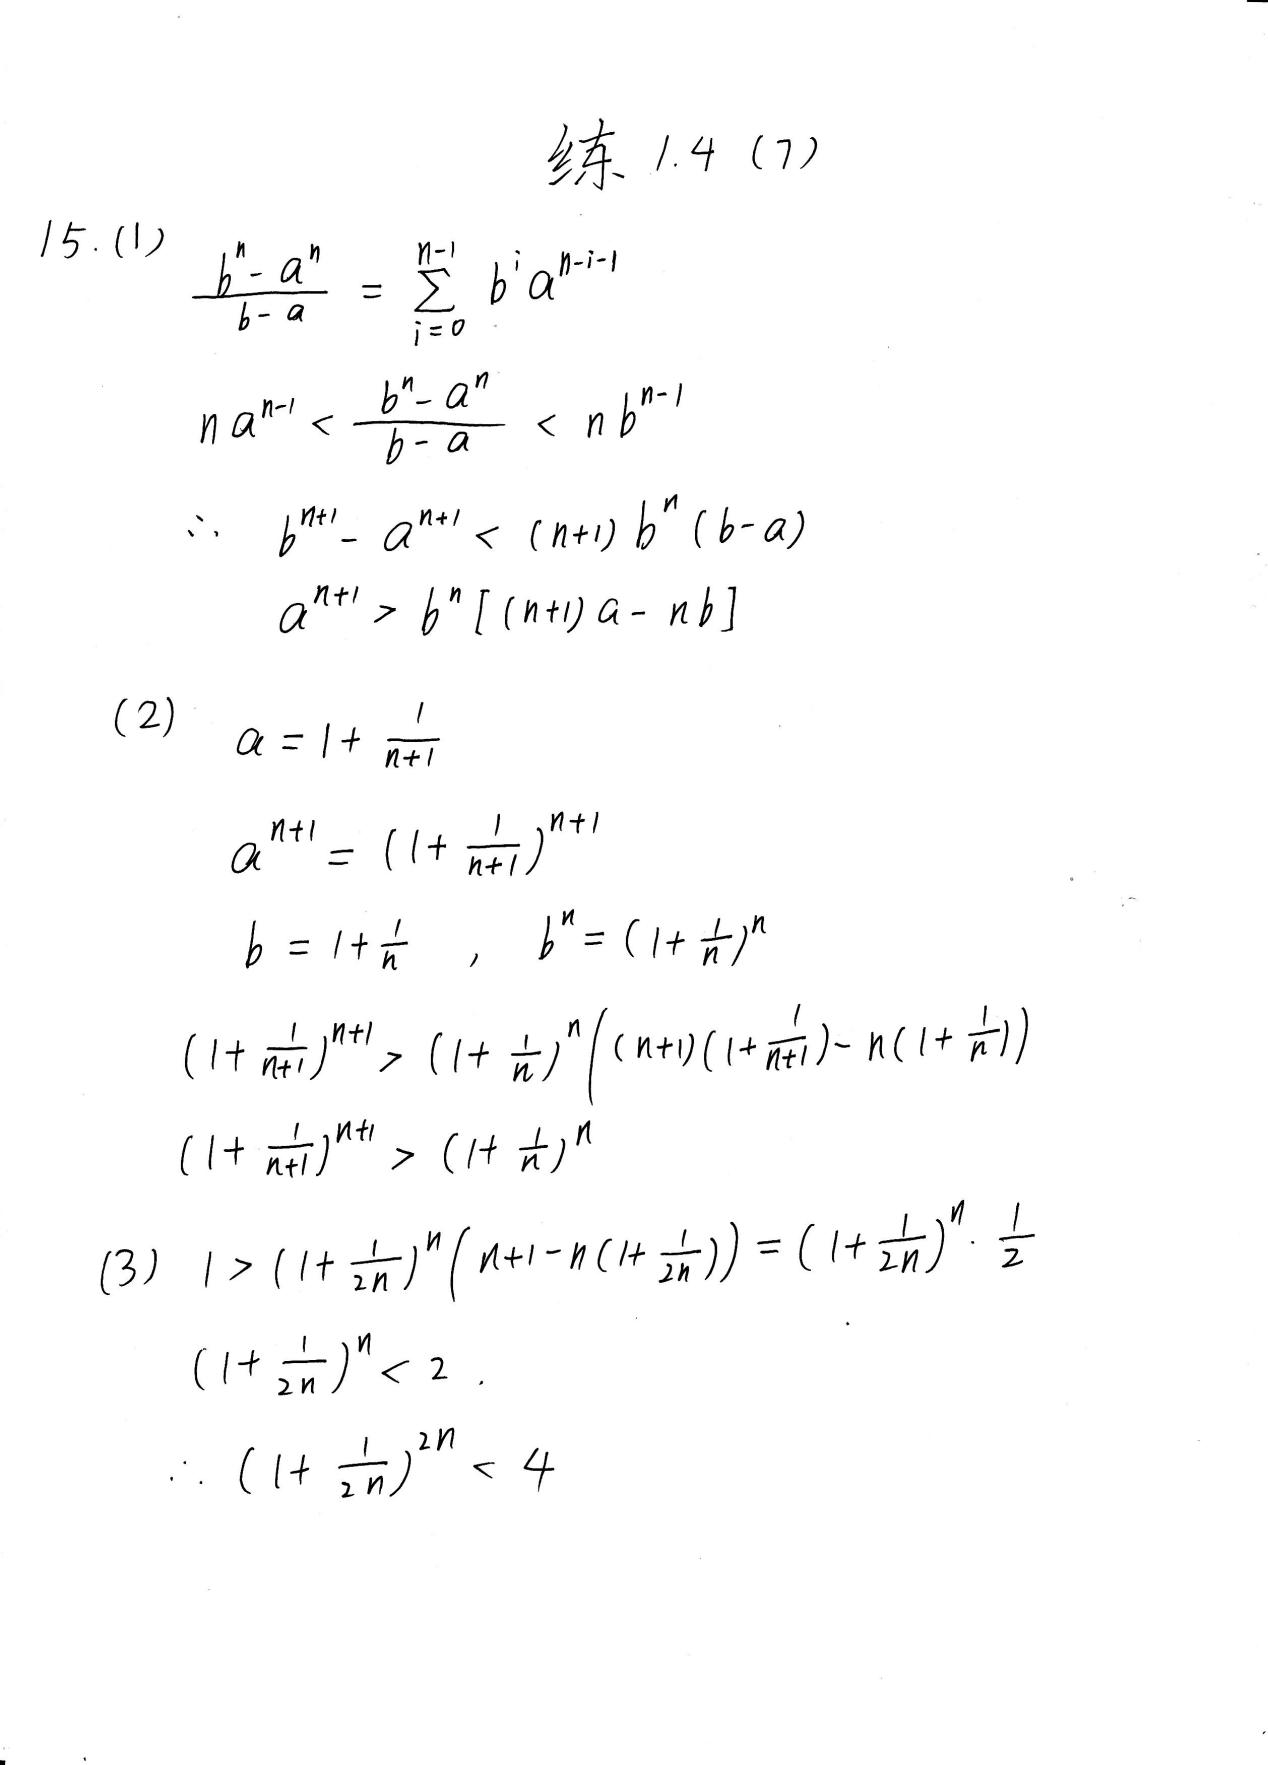 练 1.4 (7)
15.(1) \frac{b^n - a^n}{b - a} = \sum_{i=0}^{n-1} b^i a^{n-i-1}
n a^{n-1} < \frac{b^n - a^n}{b - a} < n b^{n-1}
∴ b^{n+1} - a^{n+1} < (n+1) b^n (b-a)
a^{n+1} > b^n [(n+1) a - n b]
(2) a = 1 + \frac{1}{n+1}
a^{n+1} = (1 + \frac{1}{n+1})^{n+1}
b = 1 + \frac{1}{n} , b^n = (1 + \frac{1}{n})^n
(1 + \frac{1}{n+1})^{n+1} > (1 + \frac{1}{n})^n ((n+1)(1 + \frac{1}{n+1}) - n(1 + \frac{1}{n}))
(1 + \frac{1}{n+1})^{n+1} > (1 + \frac{1}{n})^n
(3) 1 > (1 + \frac{1}{2n})^n (n+1 - n(1 + \frac{1}{2n})) = (1 + \frac{1}{2n})^n · \frac{1}{2}
(1 + \frac{1}{2n})^n < 2 .
∴ (1 + \frac{1}{2n})^{2n} < 4